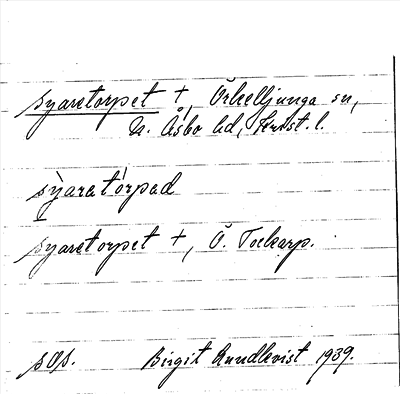 syaretorpet †, Örkelljunga sn,
N. Åsbo hd, Krist. l.
sỳaratórpad
syaretorpet †, Ö. Tockarp.
sos. Birgit Rundkvist 1939.